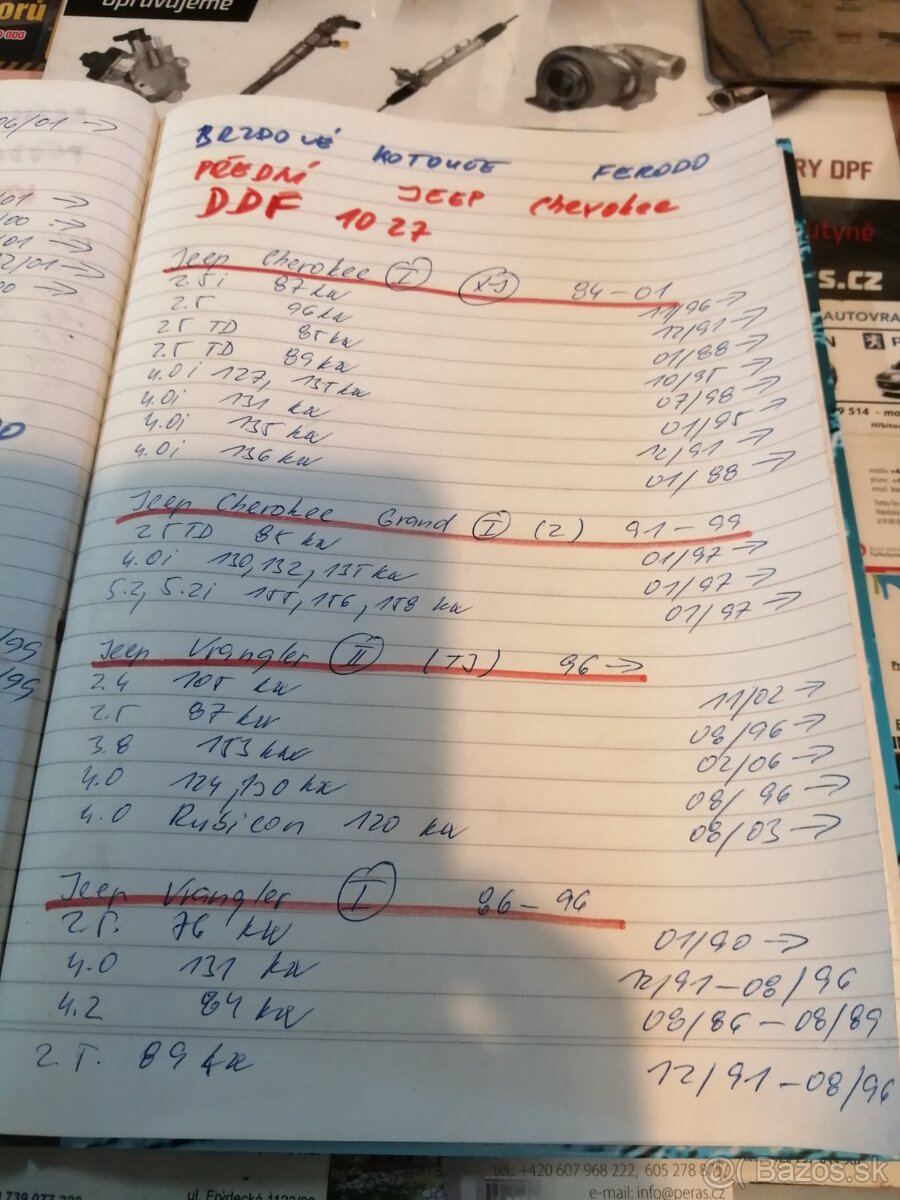 opravujeme
orů
0 000
RY DPF
utyně
s.cz
AUTOVRA
9 514 - mo
06/01 →
BRZDOVÉ KOTOUČE FERODO
PŘEDNÍ JEEP Cherokee
DDF 1027
Jeep Cherokee I XJ 84-01
2.5i 87 kw 11/96 →
2.5 96 kw 12/91 →
2.5 TD 85 kw 01/88 →
2.5 TD 89 kw 10/95 →
4.0i 127, 135 kw 07/98 →
4.0i 131 kw 01/95 →
4.0i 135 kw 12/91 →
4.0i 136 kw 01/88 →
Jeep Cherokee Grand I (Z) 91-99
2.5 TD 85 kw 01/97 →
4.0i 130, 132, 135 kw 01/97 →
5.2, 5.2i 155, 156, 158 kw 01/97 →
Jeep Vrangler II (TJ) 96 →
2.4 105 kw 11/02 →
2.5 87 kw 08/96 →
3.8 153 kw 02/06 →
4.0 124, 130 kw 08/96 →
4.0 Rubicon 120 kw 08/03 →
Jeep Vrangler I 86-96
2.5. 76 kw 01/90 →
4.0 131 kw 12/91-08/96
4.2 84 kw 08/86-08/89
2.5. 89 kw 12/91-08/96
tel.: +420 607 968 222, 605 278 873
e-mail: info@peras.cz
739 077 220
ul. Frýdecká
Bazos.sk